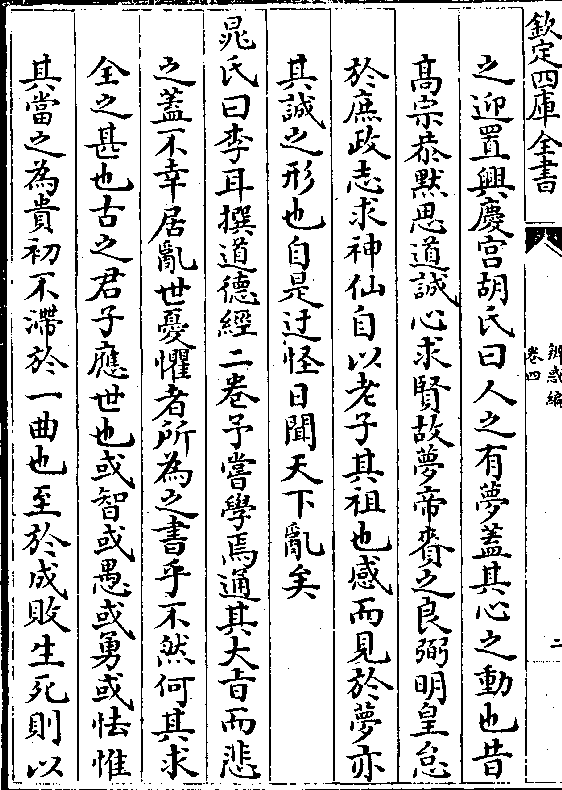 欽定四庫全書
辨惑編
卷四
二
之迎置興慶宮胡氏曰人之有夢蓋其心之動也昔
髙宗恭黙思道誠心求賢故夢帝賚之良弼明皇怠
於庶政志求神仙自以老子其祖也感而見於夢亦
其誠之形也自是迂怪日聞天下亂矣
晁氏曰李耳撰道德經二卷予嘗學焉通其大㫖而悲
之蓋不幸居亂世憂懼者所為之書乎不然何其求
全之甚也古之君子應世也或智或愚或勇或怯惟
其當之為貴初不滯於一曲也至於成敗生死則以